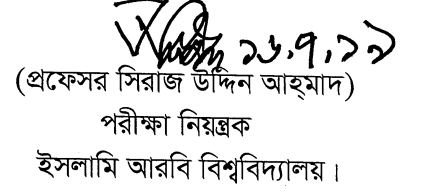 ১৬.৭.১৯
(প্রফেসর সিরাজ উদ্দিন আহ্মাদ)
পরীক্ষা নিয়ন্ত্রক
ইসলামি আরবি বিশ্ববিদ্যালয়।